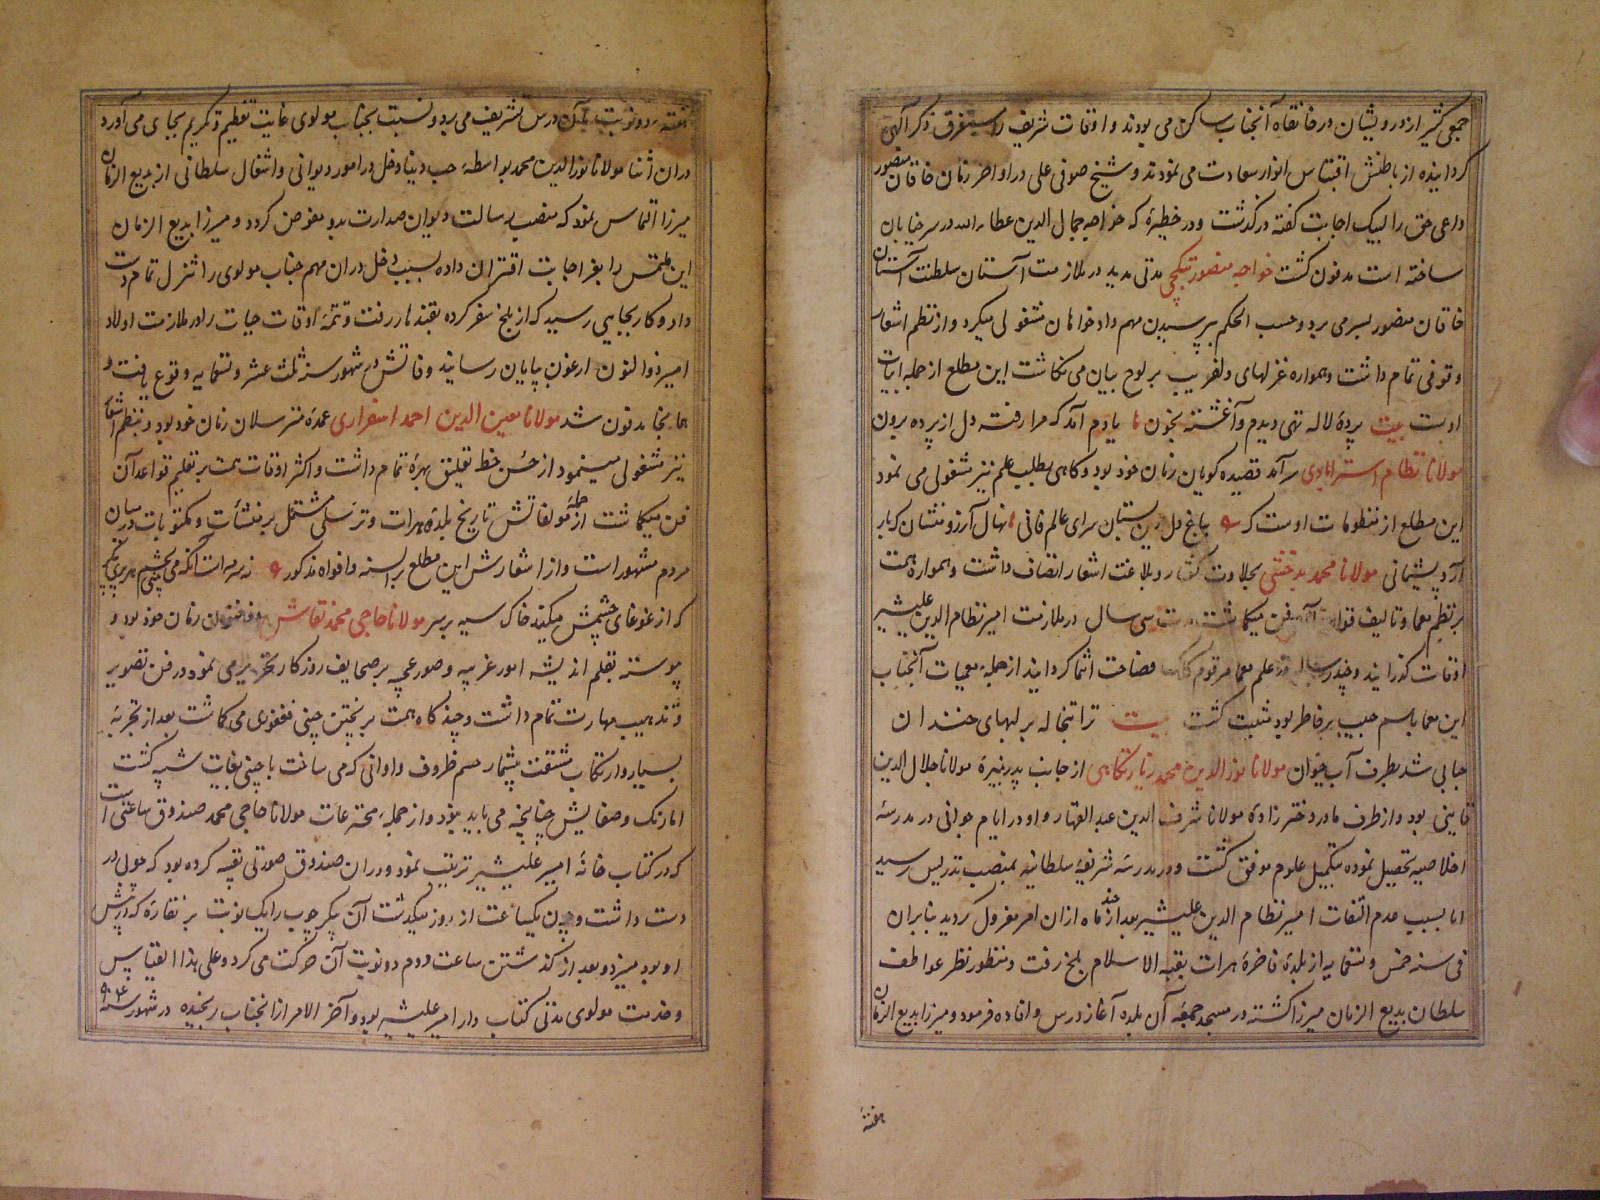 جمعی کثیر از درویشان در خانقاه آنجناب ساکن می بودند و اوقات شریف را مستغرق ذکر آلهی
کردانیده از باطنش اقتباس انوار سعادت می نمودند و شیخ صوفی علی در اواخر زمان خاقان منصور
داعی حق را لبیک اجابت کفته درکذشت و در خطیرۀ که خواجه جمال الدین عطاءالله در سر خیابان
ساخته است مدفون کشت خواجه منصور تبکچی مدتی مدید در ملازمت آستان سلطنت آشیان
خاقان منصور بسر می برد و حسب الحکم بپرسیدن مهم دادخواهان مشغولی میکرد و از نظم اشعار
وقوفی تمام داشت و همواره غزلهای دلفریب بر لوح بیان می نکاشت این مطلع از جمله ابیات
اوست بیت پردۀ لاله تهی دیدم و آغشته بخون یادم آمد که مرا رفته دل از پرده برون
مولانا نظام استرابادی سرآمد قصیده کویان زمان خود بود و کاهی بطلب علم نیز مشغولی می نمود
این مطلع از منظومات اوست که بباغ دل درین بستان سرای عالم فانی نهال آرزو منشان که بار
آرد پشیمانی مولانا محمد بدخشی بحلاوت کفتار و بلاغت اشعار اتصاف داشت و همواره همت
بر نظم معما و تالیف قواعد آن فن میکماشت مدت سی سال در ملازمت امیر نظام الدین علیشیر
اوقات کذرانید و چند رساله در علم معما مرقوم کلک فصاحت انتما کردانید از جمله معمیات آنجناب
این معما باسم حبیب بر خاطر بود ثبت کشت بیت ترا تبخاله بر لبهای خندان
حبابی شد بطرف آب حیوان مولانا نورالدین محمد زیارتکاهی از جانب پدر نبیرۀ مولانا جلال الدین
قاینی بود و از طرف مادر دختر زادۀ مولانا شرف الدین عبد القهار و او در ایام جوانی در مدرسۀ
اخلاصیه تحصیل نموده بتکمیل علوم موفق کشت و در مدرسۀ شریفۀ سلطانیه بمنصب تدریس رسید
اما بسبب عدم التفات امیر نظام الدین علیشیر بعد از چند ماه ازان امر معزول کردید بنابران
فی سنه خمس و تسعمایه از بلدۀ فاخرۀ هرات بقبة الاسلام بلخ رفت و منظور نظر عواطف
سلطان بدیع الزمان میرزا کشته در مسجد جمعۀ آن بلده آغاز درس و افاده فرمود و میرزا بدیع الزمان
هفتۀ
هفته دو نوبت بآن درس تشریف می برد و نسبت بجناب مولوی غایت تعظیم و تکریم بجای می آورد
دران اثنا مولانا نورالدین محمد بواسطۀ حب دنیا دخل در امور دیوانی و اشغال سلطانی از بدیع الزمان
میرزا التماس نمود که منصب رسالت دیوان صدارت بدو مفوض کردد و میرزا بدیع الزمان
این ملتمس را بعز اجابت اقتران داده بسبب دخل دران مهم جناب مولوی را تنزل تمام دست
داد و کار بجایی رسید که از بلخ سفر کرده بقندهار رفت و تتمۀ اوقات حیات را در ملازمت اولاد
امیر ذوالنون ارغون بپایان رسانید وفاتش در شهور سنه ثلث عشر و تسعمایه وقوع یافت و
همانجا مدفون شد مولانا معین الدین احمد اسفراری عمدۀ مترسلان زمان خود بود و بنظم اشعار
نیز مشغولی مینمود از حسن خط تعلیق بهرۀ تمام داشت و اکثر اوقات همت بر تعلیم قواعد آن
فن میکماشت از جملۀ مولفاتش تاریخ بلدۀ هرات و ترسلی مشتمل بر منشآت و مکتوبات در میان
مردم مشهور است و از اشعارش این مطلع بر السنه و افواه مذکور نه سرمه است آنکه می بینی بچشم
که از غوغای چشمش میکند خاک سیه بر سر مولانا حاجی محمد نقاش ذوفنون زمان خود بود و
پوسته بقلم اندیشه امور غریبه و صور عجیبه بر صحایف روزکار تحریر می نمود در فن تصویر
و تذهیب مهارت تمام داشت و چند کاه همت بر پختن چینی فغفوری می کماشت بعد از تجربۀ
بسیار و ارتکاب مشقت بیشمار جسم ظروف و اوانی که می ساخت با چینی بغایت شبیه کشت
اما رنک و صفایش چنانچه می باید نبود و از جملۀ مخترعات مولانا حاجی محمد صندوق ساعتی است
که در کتاب خانۀ امیر علیشیر ترتیب نمود و دران صندوق صورتی تعبیه کرده بود که چوبی در
دست داشت و چون یکساعت از روز میکذشت آن پیکر چوب را یک نوبت بر نقارۀ که در پیش
او بود میزد و بعد از کذشتن ساعت دوم دو نوبت آن حرکت می کرد و علی هذا القیاس
و خدمت مولوی مدتی کتاب دار امیر علیشیر بود و آخر الامر از آنجناب رنجیده در شهور سنه ۹۰۴